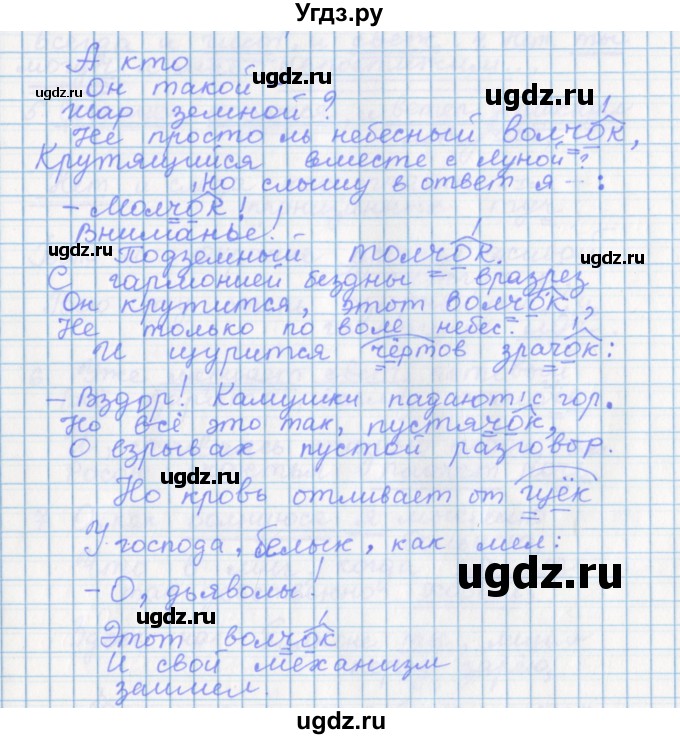 Угдз.ру
А кто
Он такой
Шар земной?
Не просто ль небесный волчок,
Крутящийся вместе с Луной?
Но слышу в ответ я –:
– Молчок!
Вниманье! –
Подземный толчок.
С гармонией бездны вразрез
Он крутится, этот волчок,
Не только по воле небес.
И щурится чёртов зрачок:
– Вздор! Камушки падают с гор.
Но всё это так, пустячок,
О взрывах пустой разговор.
Но кровь отливает от щёк
У господа, белых, как мел:
– О, дьяволы!
Этот волчок
И свой механизм
заимел.
ugdz.ru
ugdz.ru
ugdz.ru
ugdz.ru
ugdz.ru
ugdz.ru
ugdz.ru
ugdz.ru
ugdz.ru
ugdz.ru
ugdz.ru
ugdz.ru